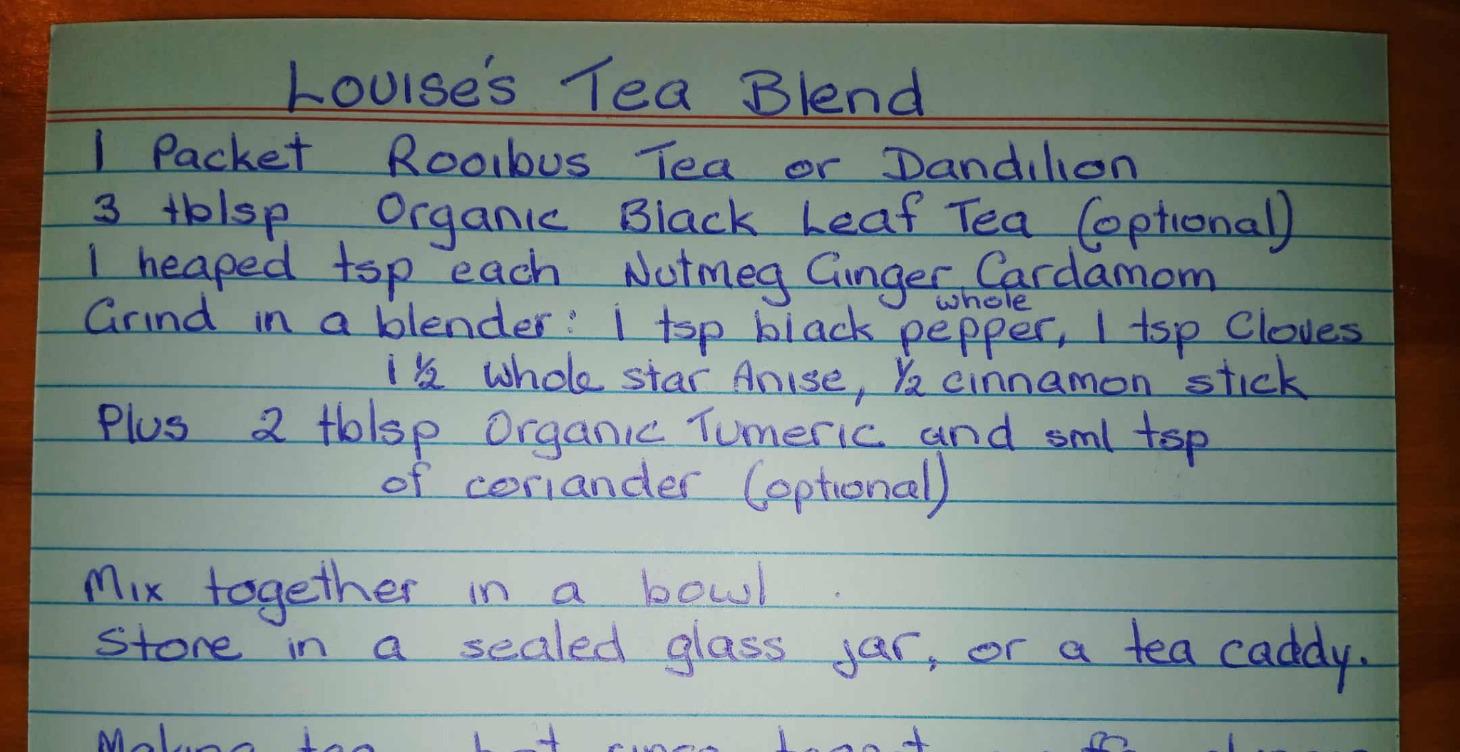 Louise's Tea Blend
1 Packet Rooibus Tea or Dandilion
3 tblsp Organic Black Leaf Tea (optional)
1 heaped tsp each Nutmeg Ginger Cardamom
whole
Grind in a blender: 1 tsp black pepper, 1 tsp Cloves
1 ½ whole star Anise, ½ cinnamon stick
Plus 2 tblsp Organic Tumeric and sml tsp
of coriander (optional)
Mix together in a bowl
Store in a sealed glass jar, or a tea caddy.
Making tea